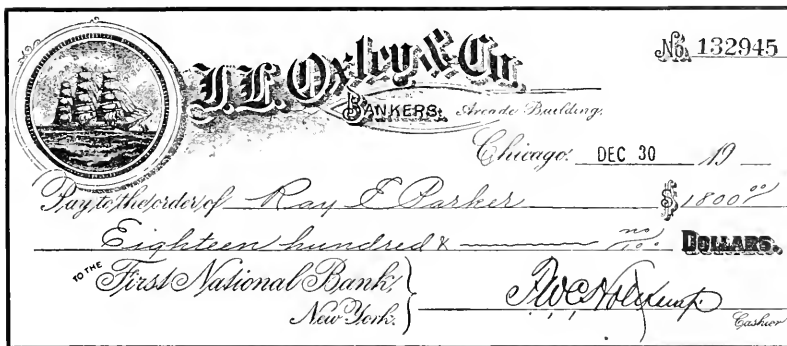 No. 132945
J. L. Oxley & Co.
BANKERS. Arcade Building.
Chicago. DEC 30 19
Pay to the order of Ray E Parker $1800 00
Eighteen hundred & no/100 DOLLARS.
TO THE First National Bank,
New York.
Cashier